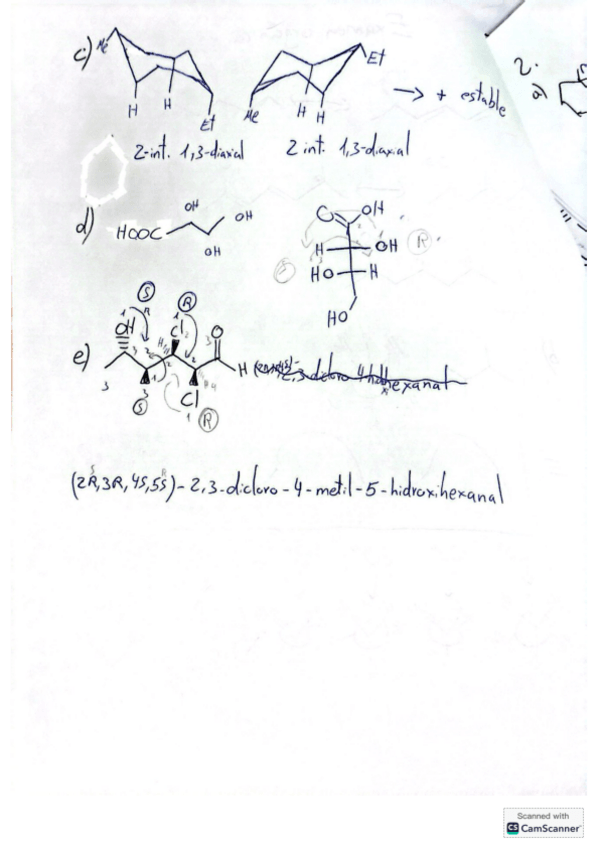 c) Me H H Et
Me H H Et → + estable
2-int. 1,3-diaxial 2 int. 1,3-diaxial
2.
a)
d) HOOC OH OH OH
O OH
H OH R
HO H
HO
e) OH S Cl R O H
S Cl R
(2R,3R,4S,5S)-2,3-dicloro-4-metil-5-hidroxihexanal
Scanned with
CS CamScanner